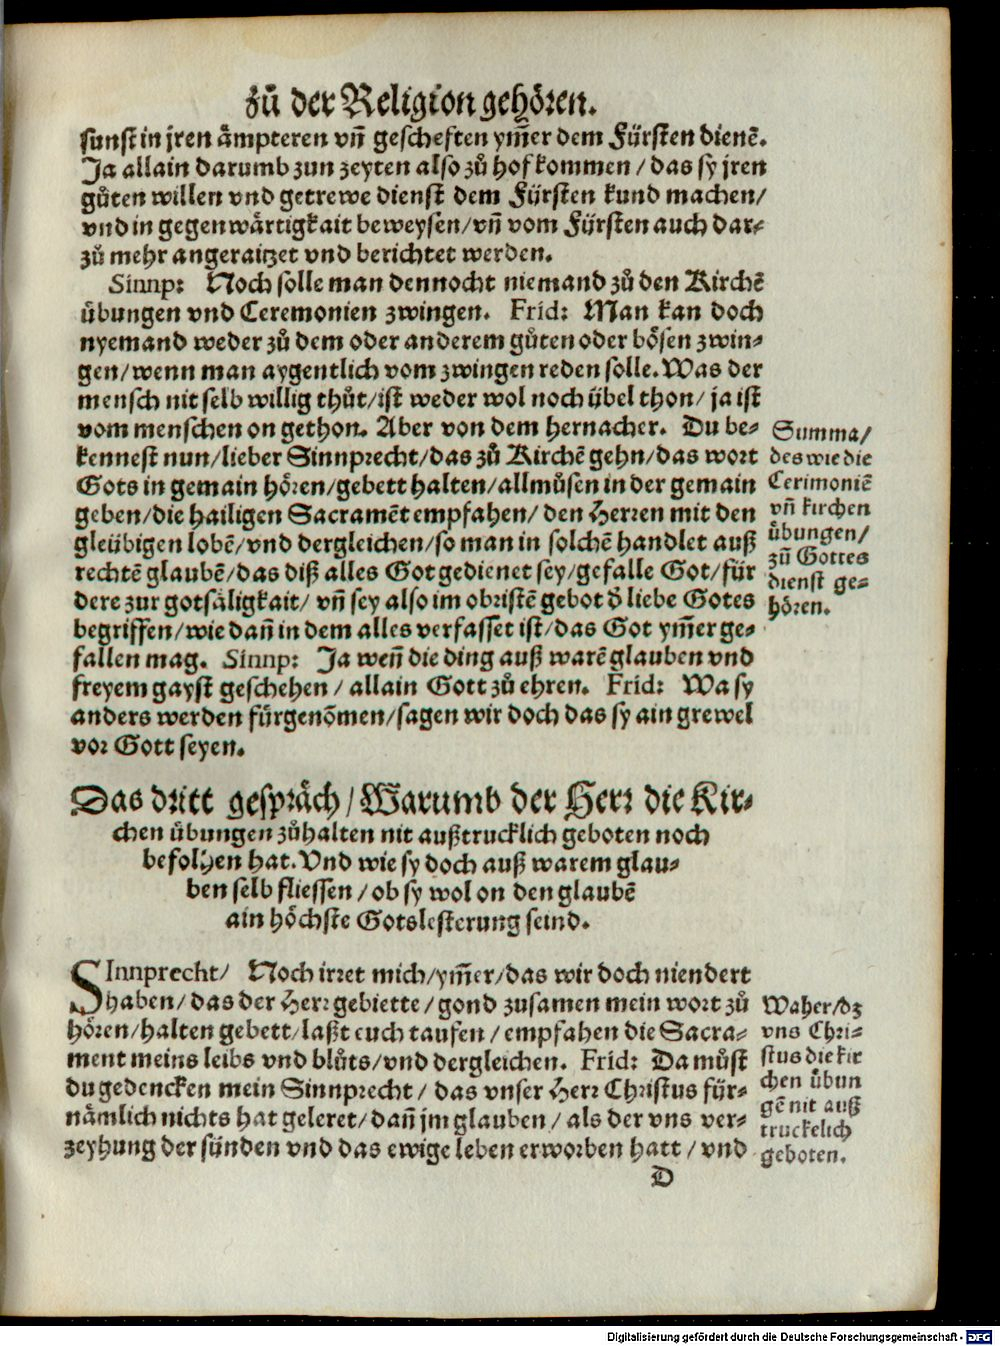 zů der Religion gehören.
sunst in jren ämpteren vñ gescheften ym̃er dem Fürsten dienẽ.
Ja allain darumb zun zeyten also zů hof kommen / das sy jren
gůten willen vnd getrewe dienst dem Fürsten kund machen/
vnd in gegenwärtigkait beweysen/ vñ vom Fürsten auch dar-
zů mehr angeraitzet vnd berichtet werden.
Sinnp: Noch solle man dennocht niemand zů den Kirchẽ
übungen vnd Ceremonien zwingen. Frid: Man kan doch
nyemand weder zů dem oder anderem gůten oder bösen zwin-
gen/ wenn man aygentlich vom zwingen reden solle. Was der
mensch nit selb willig thůt/ ist weder wol noch übel thon/ ja ist
vom menschen on gethon. Aber von dem hernacher. Du be-
kennest nun/ lieber Sinnprecht/ das zů Kirchẽ gehn/ das wort
Gots in gemain hören/ gebett halten/ allmůsen in der gemain
geben/ die hailigen Sacramẽt empfahen/ den Herren mit den
gleübigen lobẽ/ vnd dergleichen/ so man in solchẽ handlet auß
rechtẽ glaubẽ/ das diß alles Got gedienet sey/ gefalle Got/ für
dere zur gotsäligkait/ vñ sey also im obristẽ gebot d̃ liebe Gotes
begriffen/ wie dañ in dem alles verfasset ist/ das Got ym̃er ge-
fallen mag. Sinnp: Ja weñ die ding auß warẽ glauben vnd
freyem gayst geschehen / allain Gott zů ehren. Frid: Wa sy
anders werden fürgenõmen/ sagen wir doch das sy ain grewel
vor Gott seyen.
Summa/
des wie die
Cerimoniẽ
vñ kirchen
übungen/
zů Gottes
dienst ge-
hören.
Das dritt gespräch / Warumb der Herr die Kir-
chen übungen zůhalten nit außtrucklich geboten noch
befolhen hat. Vnd wie sy doch auß warem glau-
ben selb fliessen / ob sy wol on den glaubẽ
ain höchste Gotslesterung seind.
SInnprecht/ Noch irret mich/ ym̃er/ das wir doch niendert
haben/ das der Herr gebiette / gond zusamen mein wort zů
hören/ halten gebett/ laßt euch taufen / empfahen die Sacra-
ment meins leibs vnd blůts/ vnd dergleichen. Frid: Da můst
du gedencken mein Sinnprecht / das vnser Herr Christus für-
nämlich nichts hat geleret/ dañ jm glauben / als der vns ver-
zeyhung der sünden vnd das ewige leben erworben hatt / vnd
Waher/ dz
vns Chri-
stus die kir
chen übun
gẽ nit auß
truckelich
geboten.
D
Digitalisierung gefördert durch die Deutsche Forschungsgemeinschaft - DFG